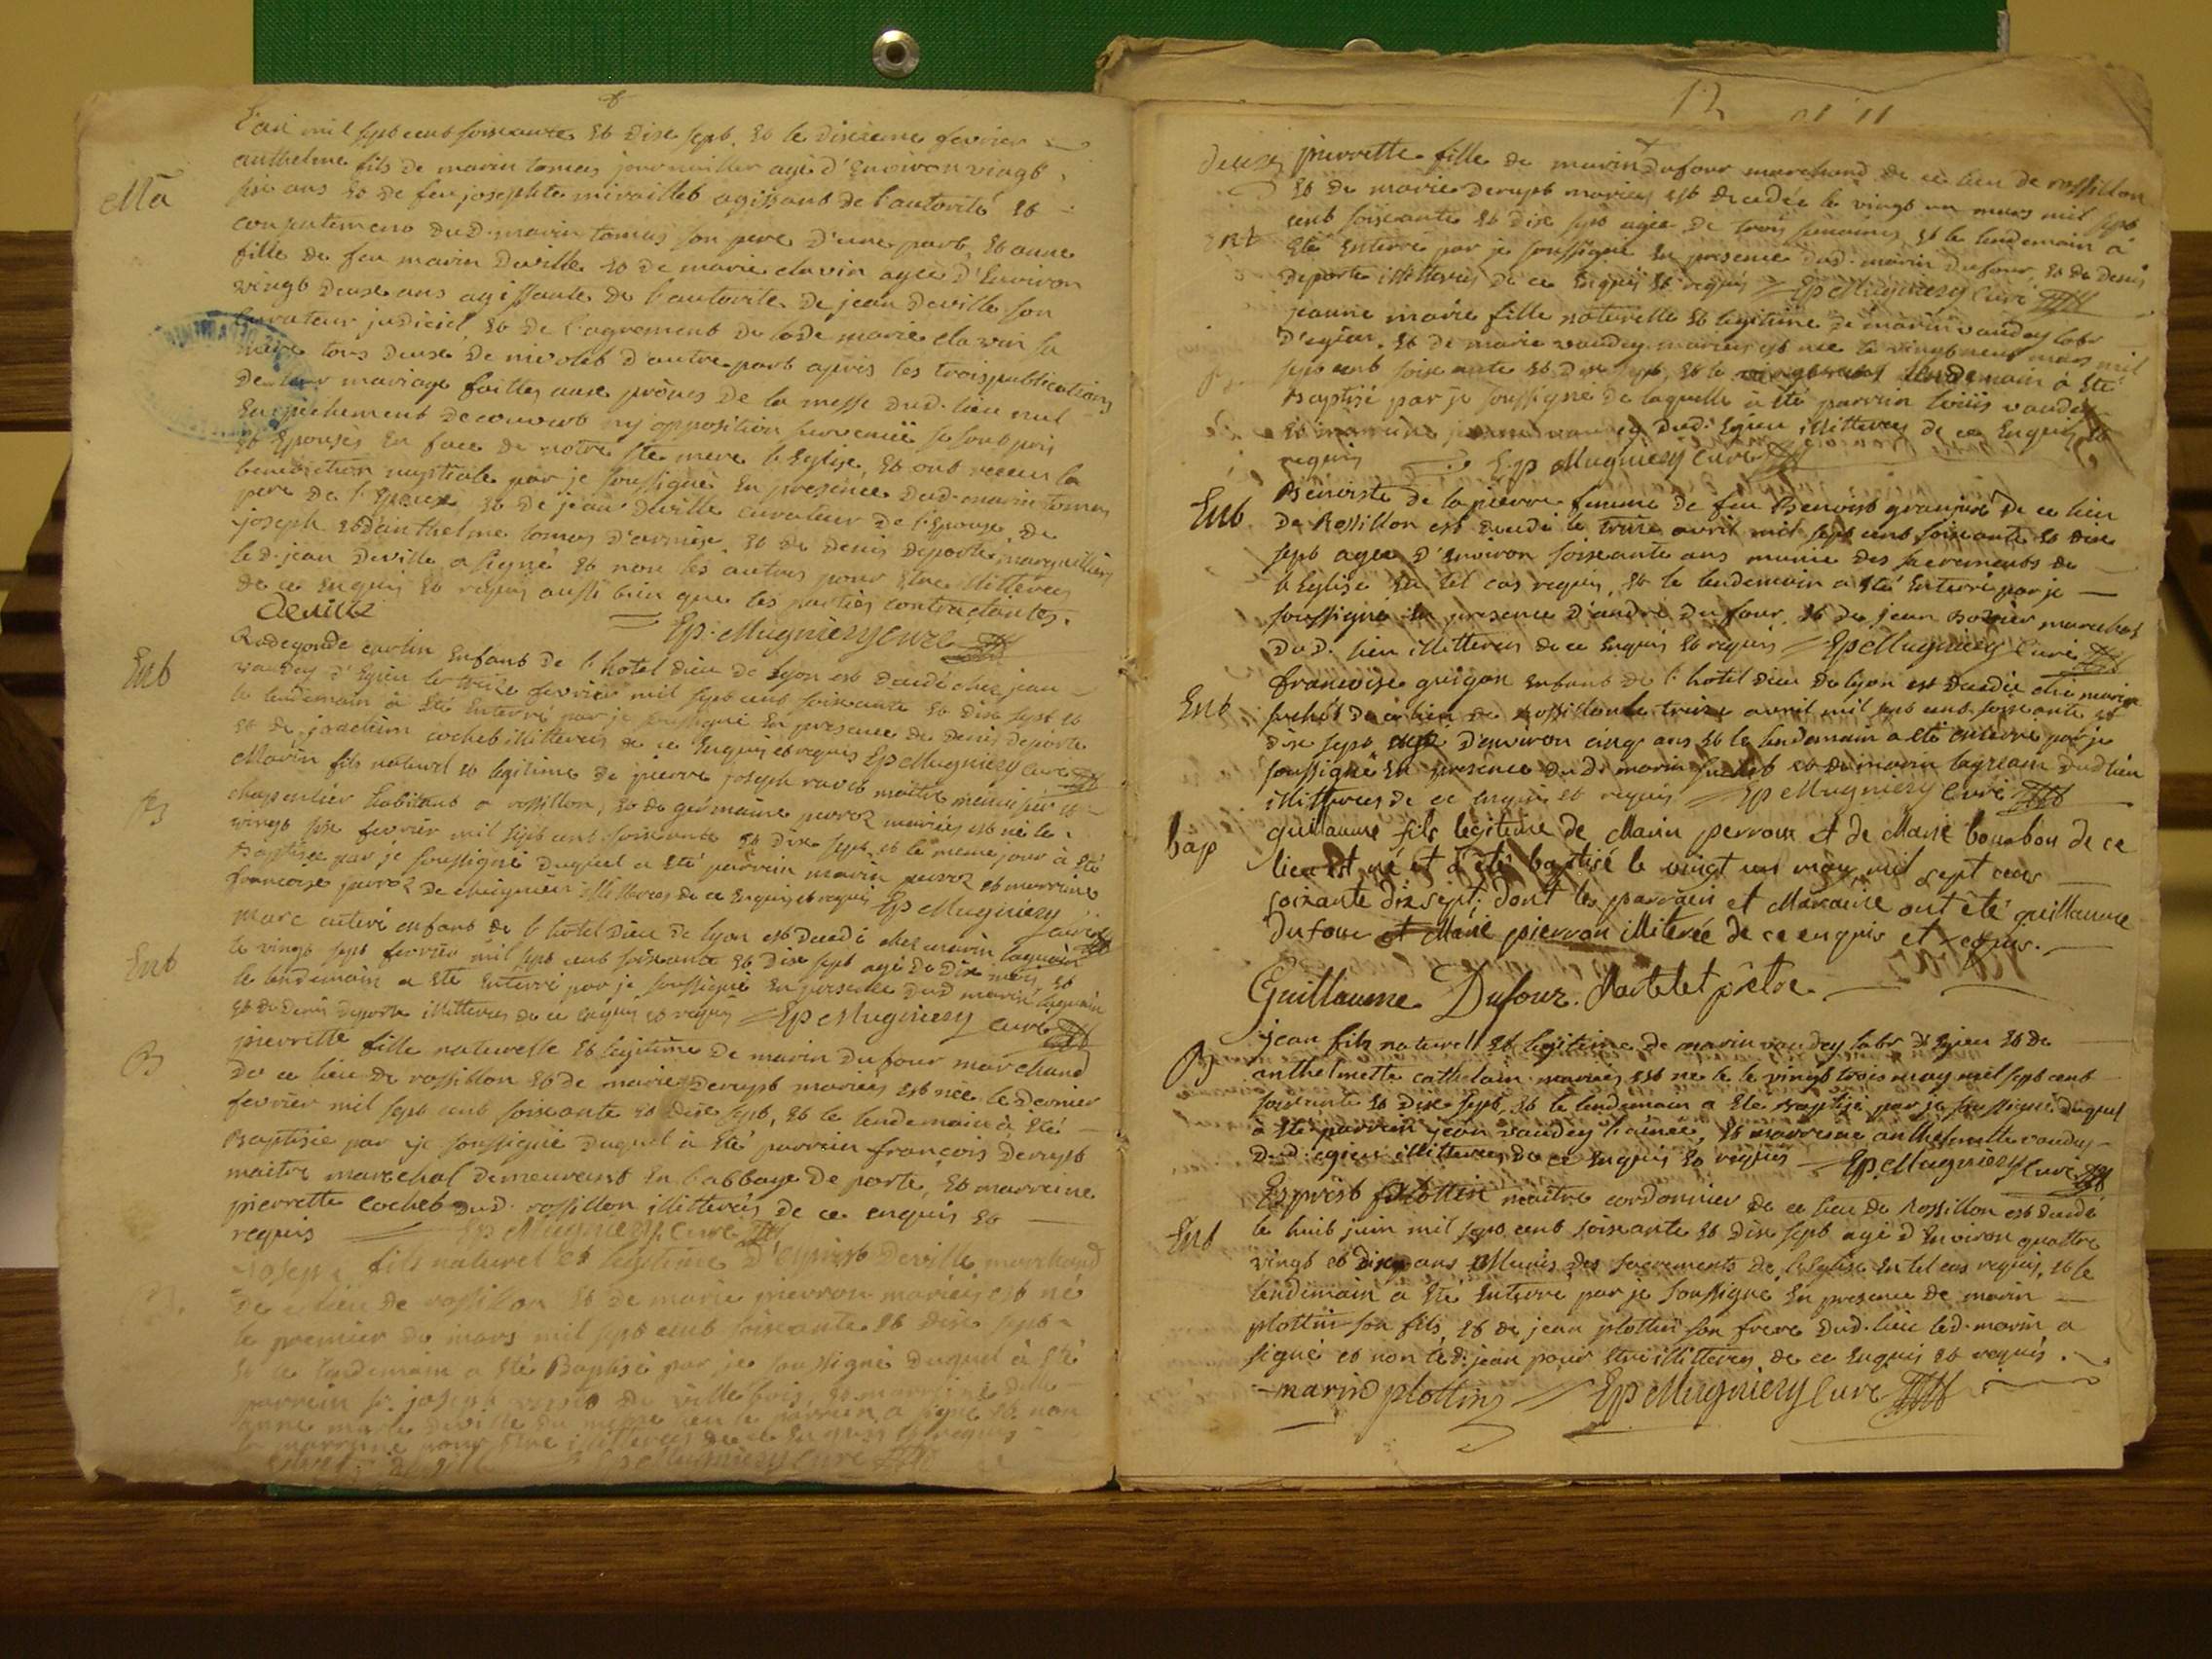 L'an mil sept cent soixante et dixe sept. et le dixieme fevrier
Ma
anthelme fils de marin tomas journaillier agé d'environ vingt
six ans et de feu josephte miraillet agissant de l'autorité et
consentement dud. marin tomas son pere d'une part, et anne
fille de feu marin Deville et de marie clavin agée d'Environ
vingt deux ans agissante de l'autorité de jean deville son
curateur judiciel, et de l'agrement de lade marie clavin sa
mère tous deux de nivolet d'autre part après les trois publications
de leur mariage faittes aux prônes de la messe dud. lieu nul
Empêchement decouvert ny opposition survenüe se sont pris
et Epousés En face de notre ste mere l'Eglise, et ont receu la
benediction nuptiale par je soussigné En presence dud. marin tomas
pere de l'Epoux, et de jean deville curateur de l'Epouse, de
joseph et d'anthelme tomas d'arnise, et de denis deporte marguillier
le d. jean deville a signé et non les autres pour Etre illitterés
de ce Enquis et requis aussi bien que les parties contractantes.
Deville
Ep. Mugniery curé
Ent
Radegonde carlin Enfant de l'hotel dieu de lyon est decedé chez jean
vaudey d'Egieu le treize fevrier mil sept cent soixante et dixe sept et
le lendemain à été Enterré par je soussigné En presence de denis deporte
et de joachim cochet illitterés de ce Enquis et requis Ep Mugniery curé
B
Marin fils naturel et legitime de pierre joseph ravet maître menuisier et
charpentier habitant a rossillon, et de germaine perroz mariés est né le
vingt six fevrier mil sept cent soixante et dixe sept, et le meme jour à été
Baptisée par je soussigné duquel a été parrein marin perroz et marreine
francoise perroz de cheignieu illitterés de ce Enquis et requis Ep Mugniery
curé
Ent
Marc enfant de l'hotel dieu de lyon est decedé chez marin laguain
le vingt sept fevrier mil sept cent soixante et dixe sept agé de dix mois et
le lendemain a été Enterré par je soussigné En presence dud marin laguain
et de denis deporte illitterés de ce Enquis et requis Ep Mugniery curé
B
pierrette fille naturelle et legitime de marin dufour marchand
de ce lieu de rossillon et de marie derupt mariés est née le dernier
fevrier mil sept cent soixante et dixe sept, et le lendemain à été
Baptisée par je soussigné duquel à été parrein françois derupt
maitre marechal demeurant En l'abbaye de porte, et marreine
pierrette cochet dud. rossillon illitterés de ce enquis et
requis Ep Mugniery curé
B
joseph fils naturel et legitime d'Esprist Deville marchand
de ce lieu de rossillon et de marie pierron mariés est né
le premier de mars mil sept cent soixante et dixe sept
et le lendemain a été Baptisé par je soussigné duquel à été
parrein sr. joseph de ville bois, et marreine delle
anne marie deville du meme lieu le parrein a signé et non
la marreine pour Etre illitterée de ce Enquis et requis
Deville Ep Mugniery curé
12
deux
pierrette fille de marin dufour marchand de ce lieu de rossillon
et de marie derupt mariés est decedée le vingt un mars mil sept
Ent
cent soixante et dixe sept agée de trois semaines, et le lendemain à
été Enterré par je soussigné En presence dud. marin dufour, et de denis
deporte illitterés de ce Enquis et requis Ep Mugniery curé
jeanne marie fille naturelle et legitime de marin vaudey labr
d'egieu, et de marie vaudey mariés est née le vingt neuf mars mil
B
sept cent soixante et dixe sept, et le lendemain à été
Baptisé par je soussigné de laquelle à été parrein loüis vaudey
et marreine vaudey dud. Egieu illitterés de ce Enquis et
requis Ep Mugniery curé
Ent
Benoiste de la pierre femme de feu Benoist granjus de ce lieu
de Rossillon est decedé le treize avril mil sept cent soixante et dixe
sept agée d'environ soixante ans munie des sacrements de
l'Eglise En tel cas requis, et le lendemain a été Enterré par je
soussigné En presence d'andré dufour, et de jean marechal
dud. lieu illitterés de ce Enquis et requis Ep Mugniery curé
Ent
francoise guigon Enfant de l'hotel dieu de lyon est decedée ché marin
suchet de ce lieu de rossillon le treize avril mil sept cent soixante et
dixe sept agée d'environ cinq ans et le lendemain a été enterré par je
soussigné En presence dud. marin suchet et de marin dud lieu
illitterés de ce enquis et requis Ep Mugniery curé
bap
guillaume fils legitime de Marin perroux et de Marie bourbou de ce
lieu est né et à été baptisé le vingt un may mil sept cens
soixante dix sept; dont les parrain et Maraine ont été guillaume
Dufour et Marie pierron illiterée de ce enquis et requis.
Guillaume Dufour. Martelet prêtre
B
jean fils naturel et legitime de marin vaudey labr d'Egieu et de
anthelmette cathelain mariés est né le le vingt trois may mil sept cent
soixante et dixe sept, et le lendemain a été Baptisé par je soussigné duquel
à été parrein jean vaudey l'ainée, et marreine anthelmette vaudey
dud. egieu illitterés de ce Enquis et requis Ep Mugniery curé
Ent
Esprist plottin maitre cordonnier de ce lieu de Rossillon est decedé
le huit juin mil sept cent soixante et dixe sept agé d'Environ quattre
vingt et dixe ans Munis des sacrements de l'Eglise En tel cas requis, et le
lendemain a été Enterré par je soussigné En presence de marin
plottin son fils, et de jean plottin son frere dud. lieu led. marin a
signé et non led. jean pour Etre illitterés de ce Enquis et requis.
marin plottin Ep Mugniery curé